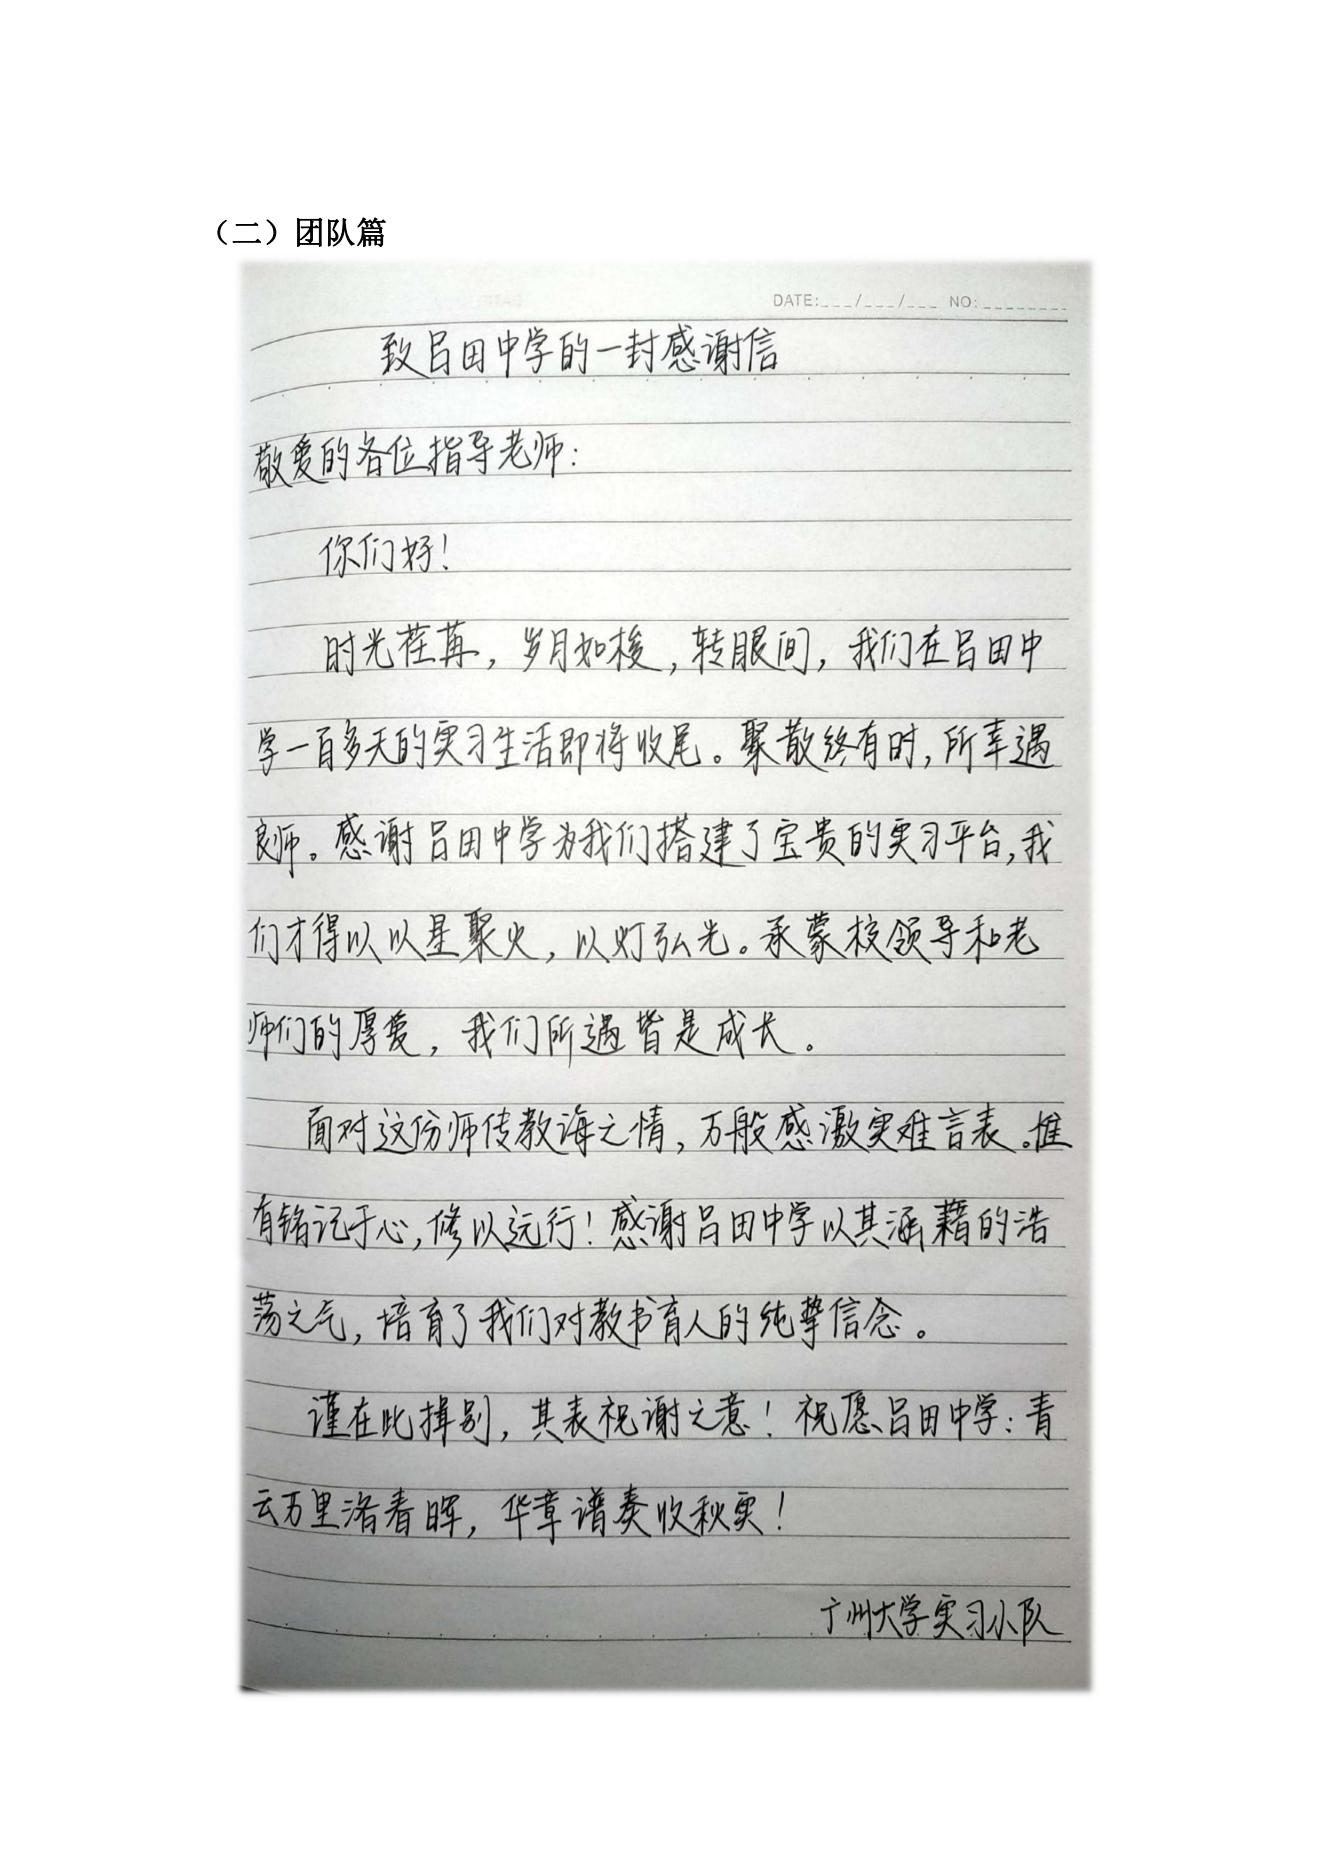 （二）团队篇
DATE:___/___/___ NO:________
致吕田中学的一封感谢信
敬爱的各位指导老师：
你们好！
时光荏苒，岁月如梭，转眼间，我们在吕田中
学一百多天的实习生活即将收尾。聚散终有时，所幸遇
良师。感谢吕田中学为我们搭建了宝贵的实习平台，我
们才得以以星聚火，以灯弘光。承蒙校领导和老
师们的厚爱，我们所遇皆是成长。
面对这份师传教诲之情，万般感激实难言表。惟
有铭记于心，修以远行！感谢吕田中学以其涵藉的浩
荡之气，培育了我们对教书育人的纯挚信念。
谨在此揖别，其表祝谢之意！祝愿吕田中学：青
云万里洛春晖，华章谱奏收秋实！
广州大学实习小队